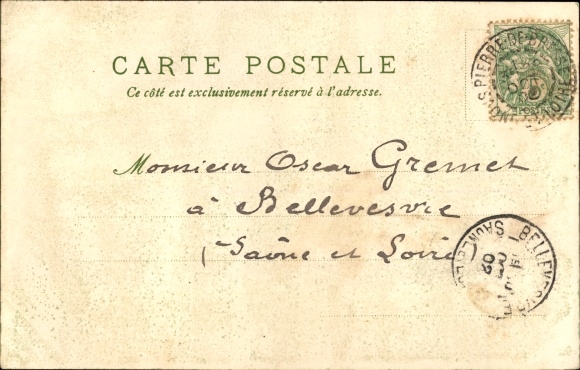 CARTE POSTALE
Ce côté est exclusivement réservé à l'adresse.
Monsieur Oscar Gremet
à Bellevesvre
(Saône et Loire)
BELLEVESVRE